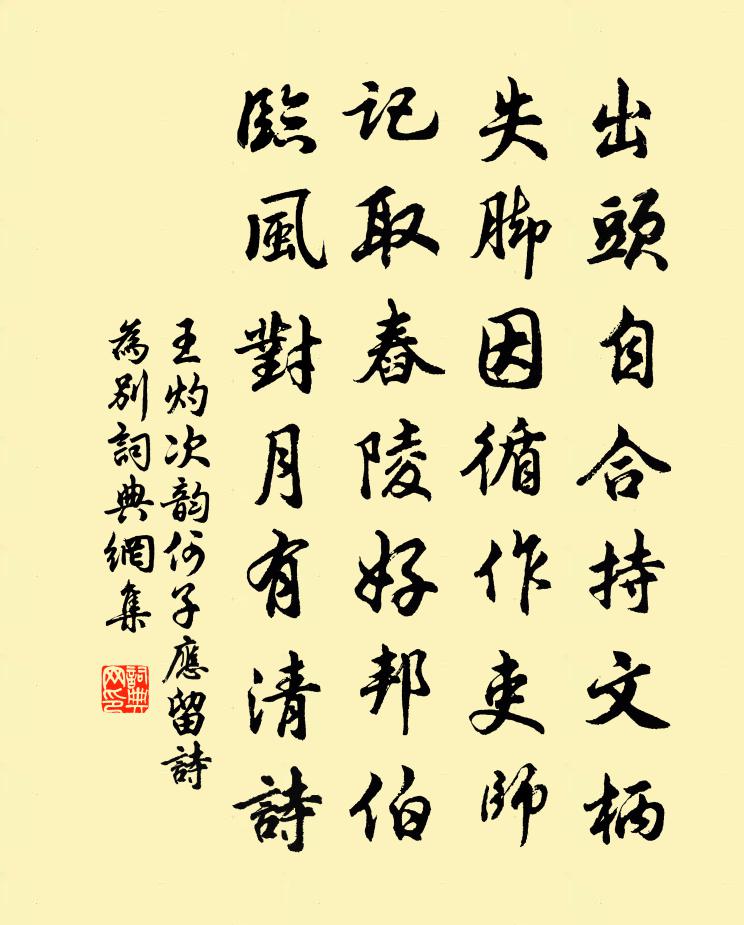 出頭自合持文柄
失脚因循作吏師
記取舂陵好邦伯
臨風對月有清詩
王灼次韵何子應留詩
為別詞典網集
詞典网印